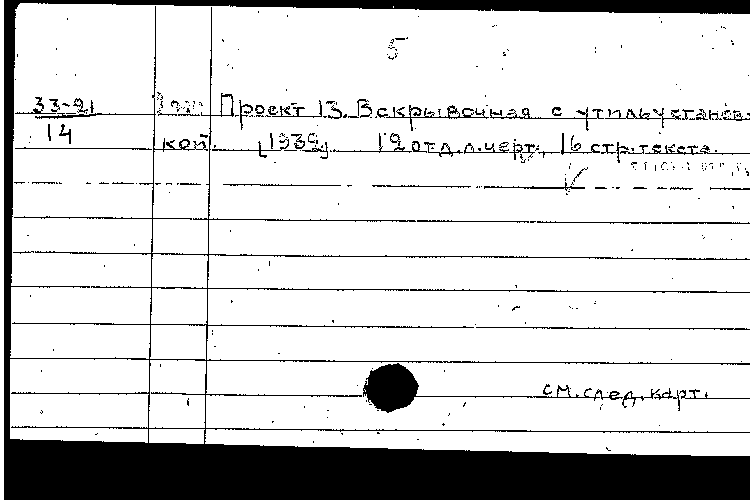 5
33-21 Проект 13. Вскрывочная с утильустанов-
14 кой. [1939] 12 отд.л.черт., 16 стр.текста.
см.след.карт.